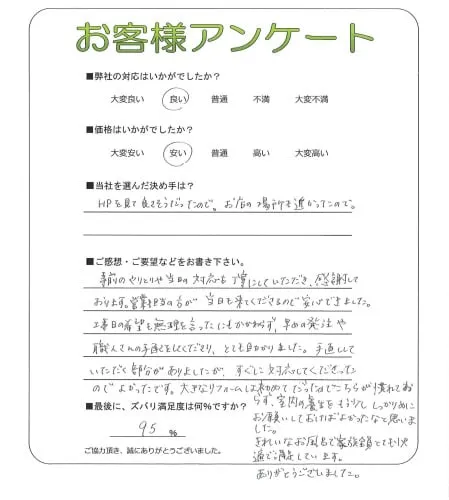 お客様アンケート
■弊社の対応はいかがでしたか？
大変良い 良い 普通 不満 大変不満
■価格はいかがでしたか？
大変安い 安い 普通 高い 大変高い
■当社を選んだ決め手は？
HPを見て良さそうだったので。お店の場所も近かったので。
■ご感想・ご要望などをお書き下さい。
事前のやりとりや当日の対応も丁寧にしていただき、感謝して
おります。営業担当の方が当日も来てくださるので安心できました。
工事日の希望も無理を言ったにもかかわらず、早めの発注や
職人さんの手配をしてくださり、とても助かりました。手直しして
いただく部分がありましたが、すぐに対応してくださった
のでよかったです。大きなリフォームは初めてだったのでこちらが慣れてお
らず、室内の養生をもう少ししっかりめに
お願いしておけばよかったなと思いま
した。
きれいなお風呂で家族全員とても快
適で過しています。
ありがとうございました。
■最後に、ズバリ満足度は何%ですか？
95 %
ご協力頂き、誠にありがとうございました。